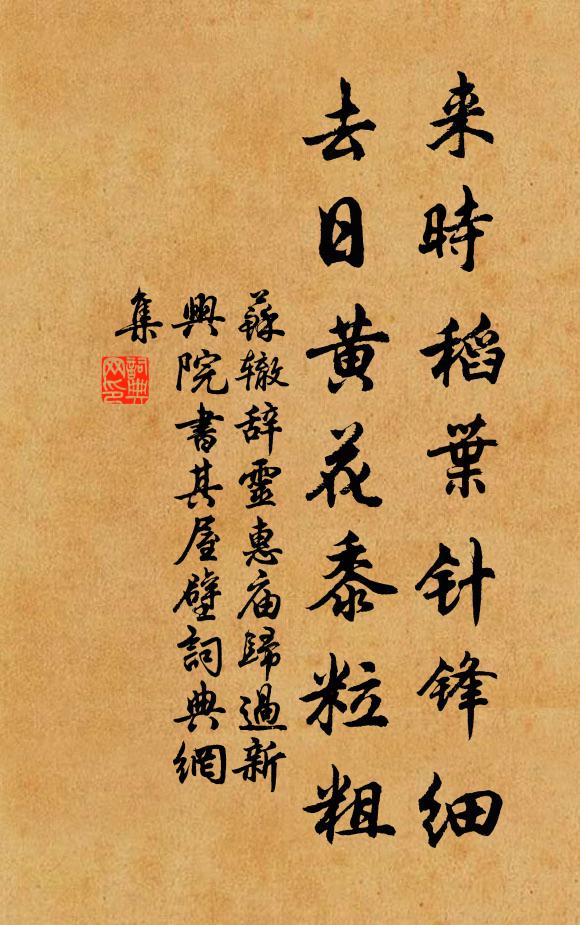 来時稻葉针锋细
去日黄花黍粒粗
蘇辙辞靈惠庙歸過新
興院書其屋壁詞典網
集
詞典
网印